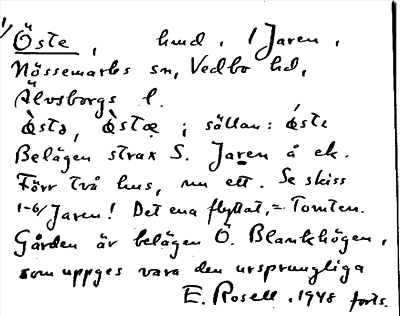 1/
Öste, hmd. 1 Jaren,
Nössemarks sn, Vedbo hd,
Älvsborgs l.
ö̀stə, ö̀stæ; sällan: ǿste
Belägen strax S. Jaren å ek.
Förr två hus, nu ett. Se skiss
1-6/Jaren! Det ena flyttat, = Tomten.
Gården är belägen Ö. Blankhögen,
som uppges vara den ursprungliga
E. Rosell. 1948 forts.